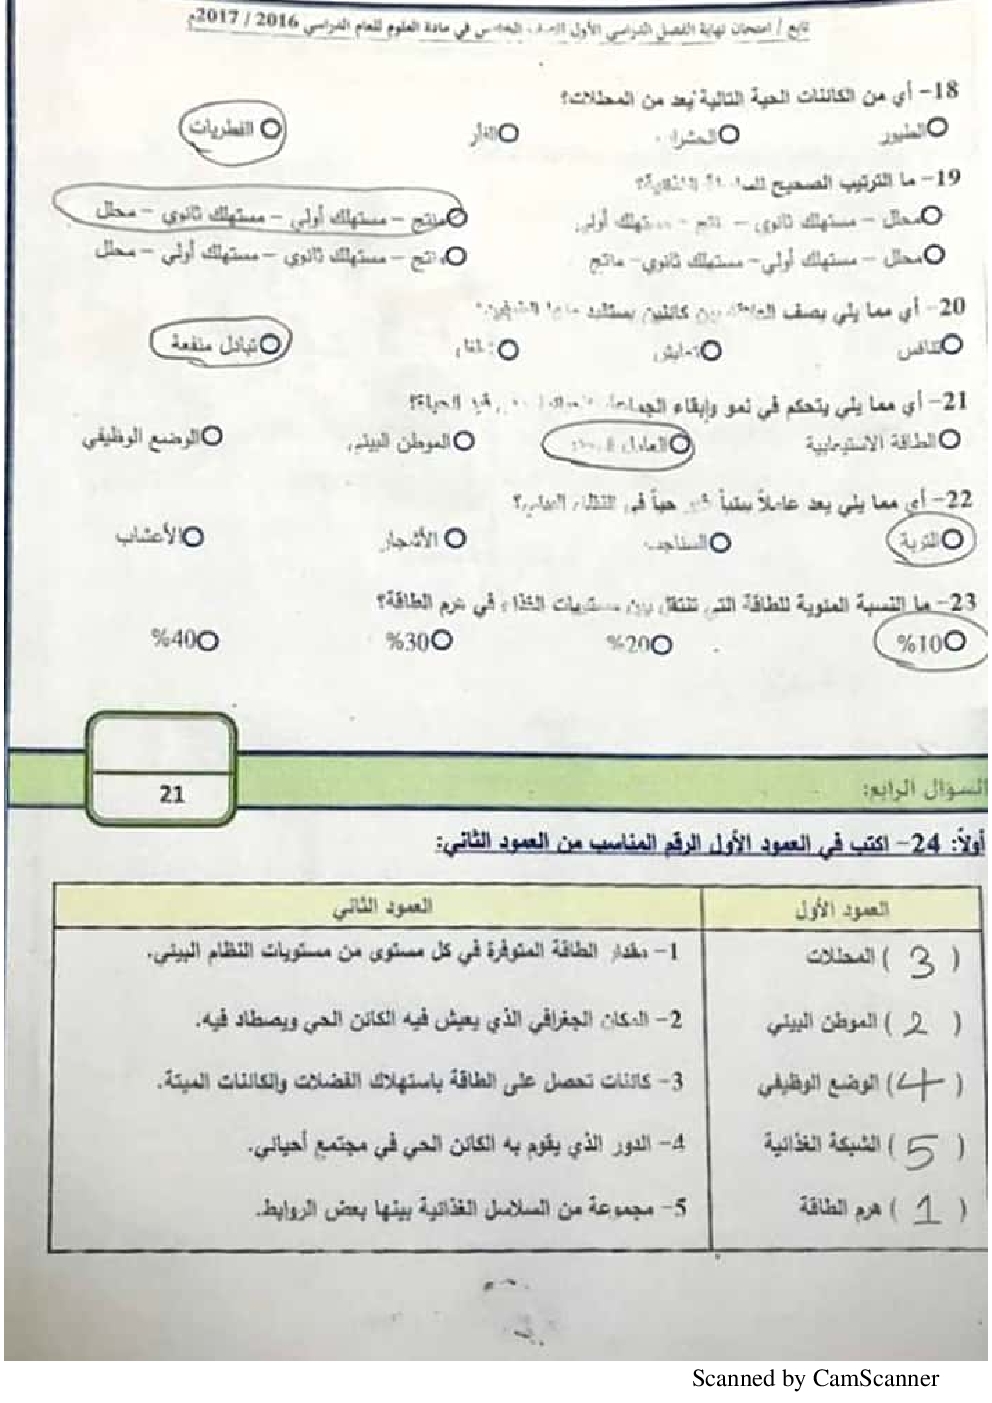 تابع / امتحان نهاية الفصل الدراسي الأول للصف الخامس في مادة العلوم للعام الدراسي 2016 / 2017م
18- أي من الكائنات الحية التالية يعد من المحللات؟
الطيور الحشرات الفأر الفطريات
19- ما الترتيب الصحيح للسلسلة الغذائية؟
محلل - مستهلك ثانوي - منتج - مستهلك أولي منتج - مستهلك أولي - مستهلك ثانوي - محلل
محلل - مستهلك أولي - مستهلك ثانوي - منتج منتج - مستهلك ثانوي - مستهلك أولي - محلل
20- أي مما يلي يصف العلاقة بين كائنين يستفيد منها الطرفين؟
تنافس تعايش تطفل تبادل منفعة
21- أي مما يلي يتحكم في نمو وإبقاء الجماعات قيد الحياة؟
الطاقة الاستيعابية العامل المحدد الموطن البيئي الوضع الوظيفي
22- أي مما يلي يعد عاملاً بيئياً غير حياً في النظام البيئي؟
التربة السناجب الأشجار الأعشاب
23- ما النسبة المئوية للطاقة التي تنتقل بين مستويات الغذاء في هرم الطاقة؟
%10 %20 %30 %40
21
السؤال الرابع:
أولاً: 24- اكتب في العمود الأول الرقم المناسب من العمود الثاني:
العمود الأول العمود الثاني
( 3 ) المحللات 1- مقدار الطاقة المتوفرة في كل مستوى من مستويات النظام البيئي.
( 2 ) الموطن البيئي 2- المكان الجغرافي الذي يعيش فيه الكائن الحي ويصطاد فيه.
( 4 ) الوضع الوظيفي 3- كائنات تحصل على الطاقة باستهلاك الفضلات والكائنات الميتة.
( 5 ) الشبكة الغذائية 4- الدور الذي يقوم به الكائن الحي في مجتمع أحيائي.
( 1 ) هرم الطاقة 5- مجموعة من السلاسل الغذائية بينها بعض الروابط.
Scanned by CamScanner